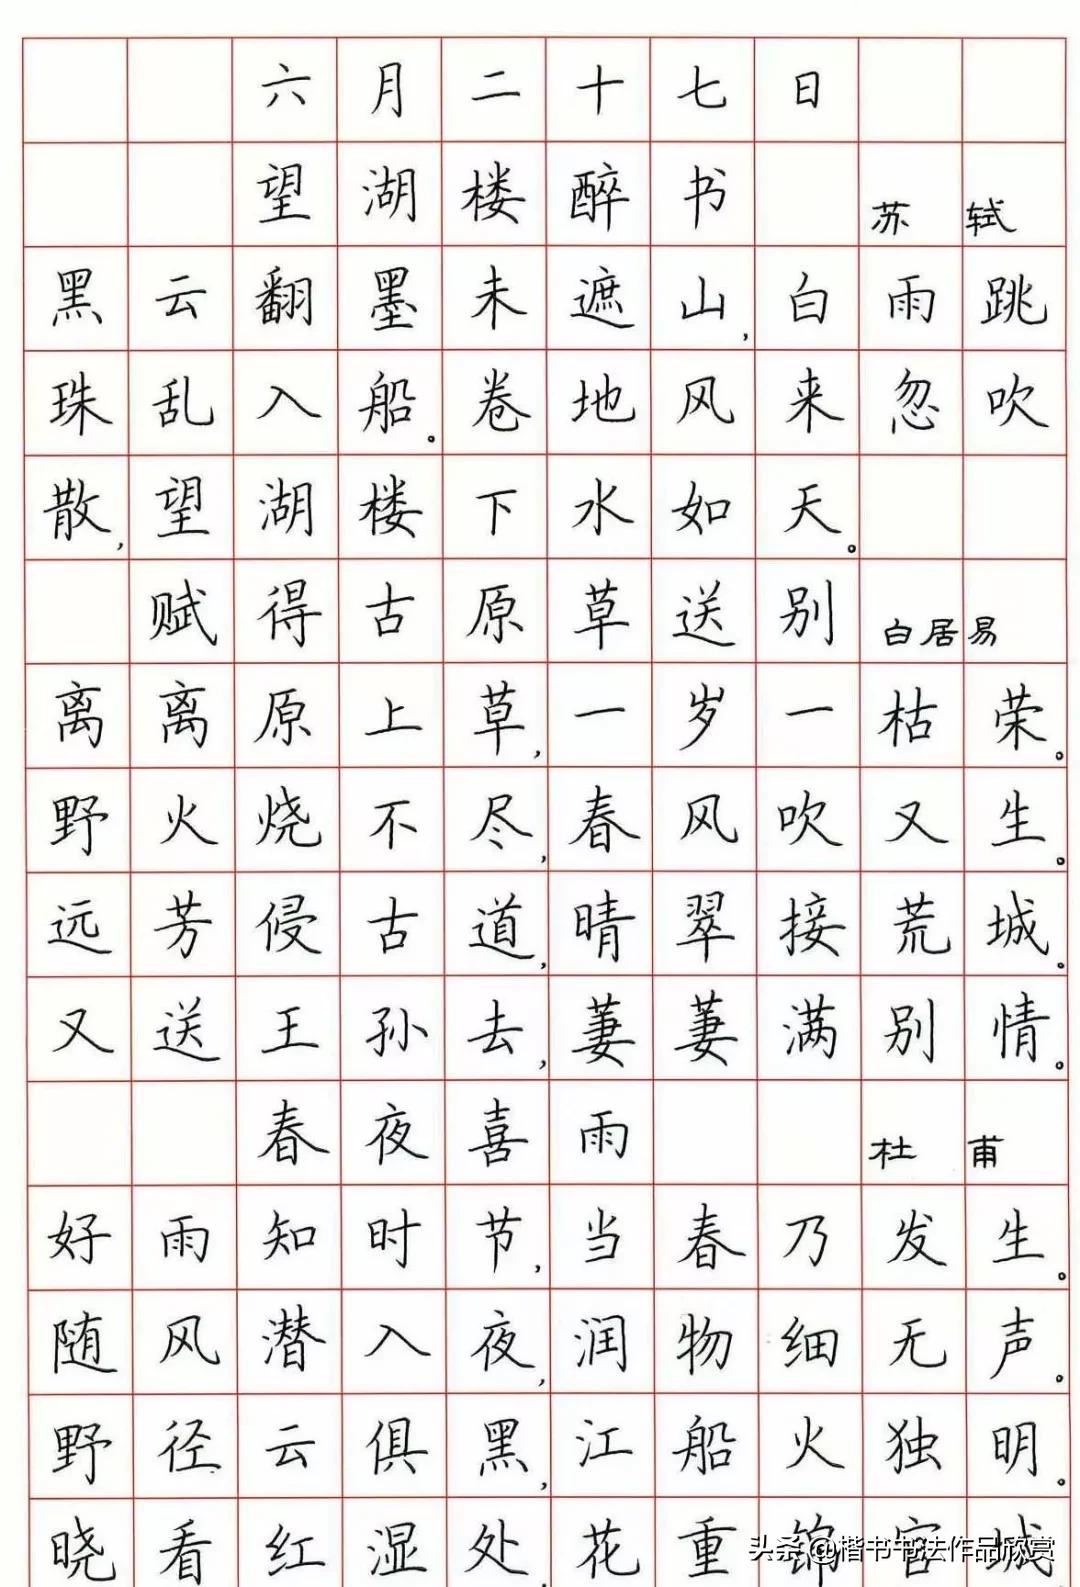 六月二十七日
望湖楼醉书 苏轼
黑云翻墨未遮山,白雨跳
珠乱入船。卷地风来忽吹
散,望湖楼下水如天。
赋得古原草送别 白居易
离离原上草,一岁一枯荣。
野火烧不尽,春风吹又生。
远芳侵古道,晴翠接荒城。
又送王孙去,萋萋满别情。
春夜喜雨 杜甫
好雨知时节,当春乃发生。
随风潜入夜,润物细无声。
野径云俱黑,江船火独明。
晓看红湿处,花重锦官城
头条@楷书书法作品欣赏